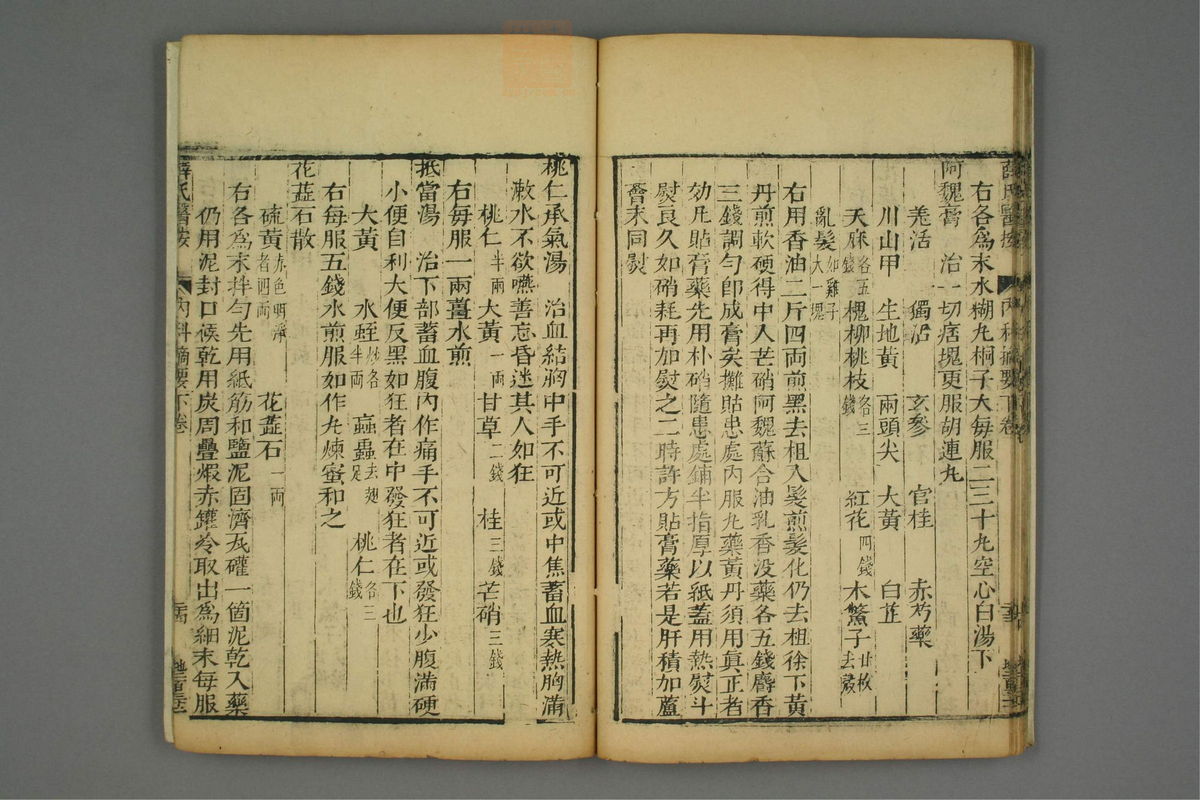 薛氏醫按　內科摘要下卷
右各爲末水糊丸桐子大每服二三十丸空心白湯下
阿魏膏　治一切痞塊更服胡連丸
羗活　獨活　玄參　官桂　赤芍藥
川山甲　生地黃　兩頭尖　大黃　白芷
天麻各五錢　槐柳桃枝各三錢　紅花四錢　木鱉子廿枚去殼
亂髮如雞子大一塊
右用香油二斤四兩煎黑去柤入髮煎髮化仍去柤徐下黃
丹煎軟硬得中入芒硝阿魏蘇合油乳香没藥各五錢麝香
三錢調勻卽成膏矣攤貼患處內服丸藥黃丹須用眞正者
効凡貼膏藥先用朴硝隨患處鋪半指厚以紙蓋用熱熨斗
熨良久如硝耗再加熨之二時許方貼膏藥若是肝積加蘆
薈末同熨
桃仁承氣湯　治血結胸中手不可近或中焦蓄血寒熱胸滿
漱水不欲嚥善忘昏迷其人如狂
桃仁半兩　大黃一兩　甘草二錢　桂三錢　芒硝三錢
右每服一兩薑水煎
抵當湯　治下部蓄血腹內作痛手不可近或發狂少腹滿硬
小便自利大便反黑如狂者在中發狂者在下也
大黃　水蛭炒各半兩　䖟蟲去翅足　桃仁各三錢
右每服五錢水煎服如作丸煉蜜和之
花蕊石散
硫黃赤色明淨者四兩　花蕊石一兩
右各爲末拌勻先用紙筋和鹽泥固濟瓦礶一箇泥乾入藥
仍用泥封口候乾用炭周疊煆赤鑵冷取出爲細末每服
薛氏醫按　內科摘要下卷